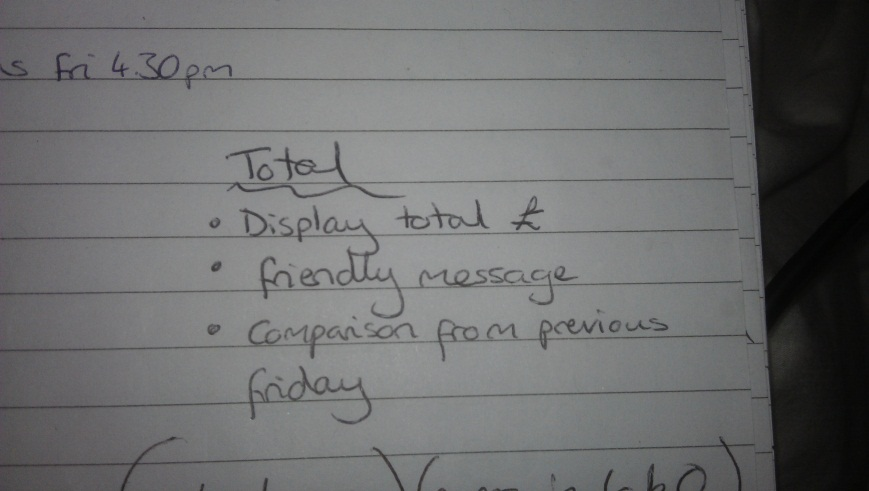 s fri 4.30pm
Total
• Display total £
• friendly message
• Comparison from previous
friday